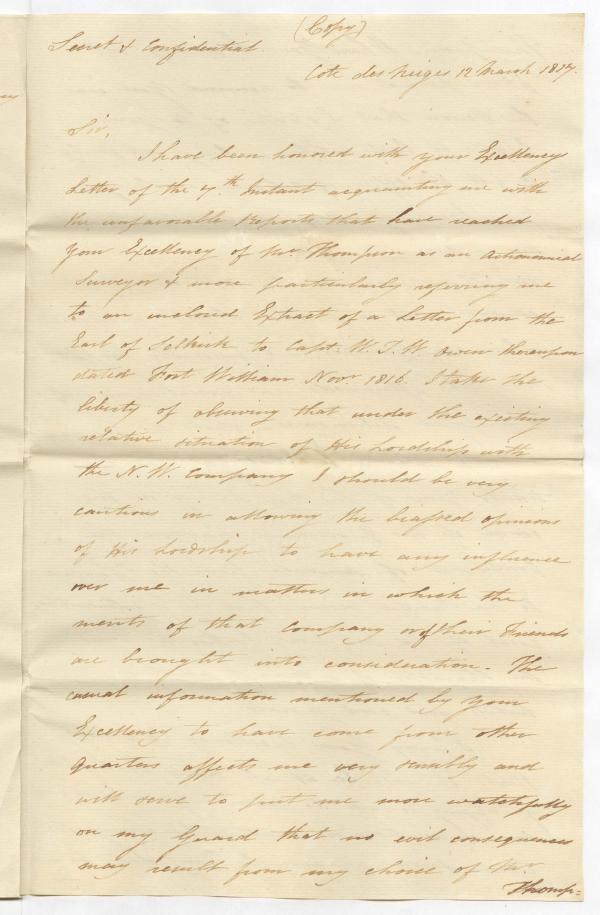 (Copy)
Secret & Confidential.
Cote des Neiges 12 March 1817.
Sir,
I have been honored with your Excellency
Letter of the 7th Instant acquainting me with
the unfavorable Reports that have reached
Your Excellency of Mr Thompson as an Astronomical
Surveyor & more particularly referring me
to an inclosed Extract of a Letter from the
Earl of Selkirk to Capt. W. F. W. Owen thereupon
dated Fort William Novr 1816. I take the
liberty of observing that under the existing
relative situation of His Lordship with
the N. W. Company I should be very
cautious in allowing the biassed opinions
of His Lordship to have any influence
over me in matters in which the
merits of that Company or of their Friends
are brought into consideration. The
casual information mentioned by Your
Excellency to have come from other
quarters affects me very sensibly and
will serve to put me more watchfully
on my Guard that no evil consequences
may result from my choice of Mr
Thomp=